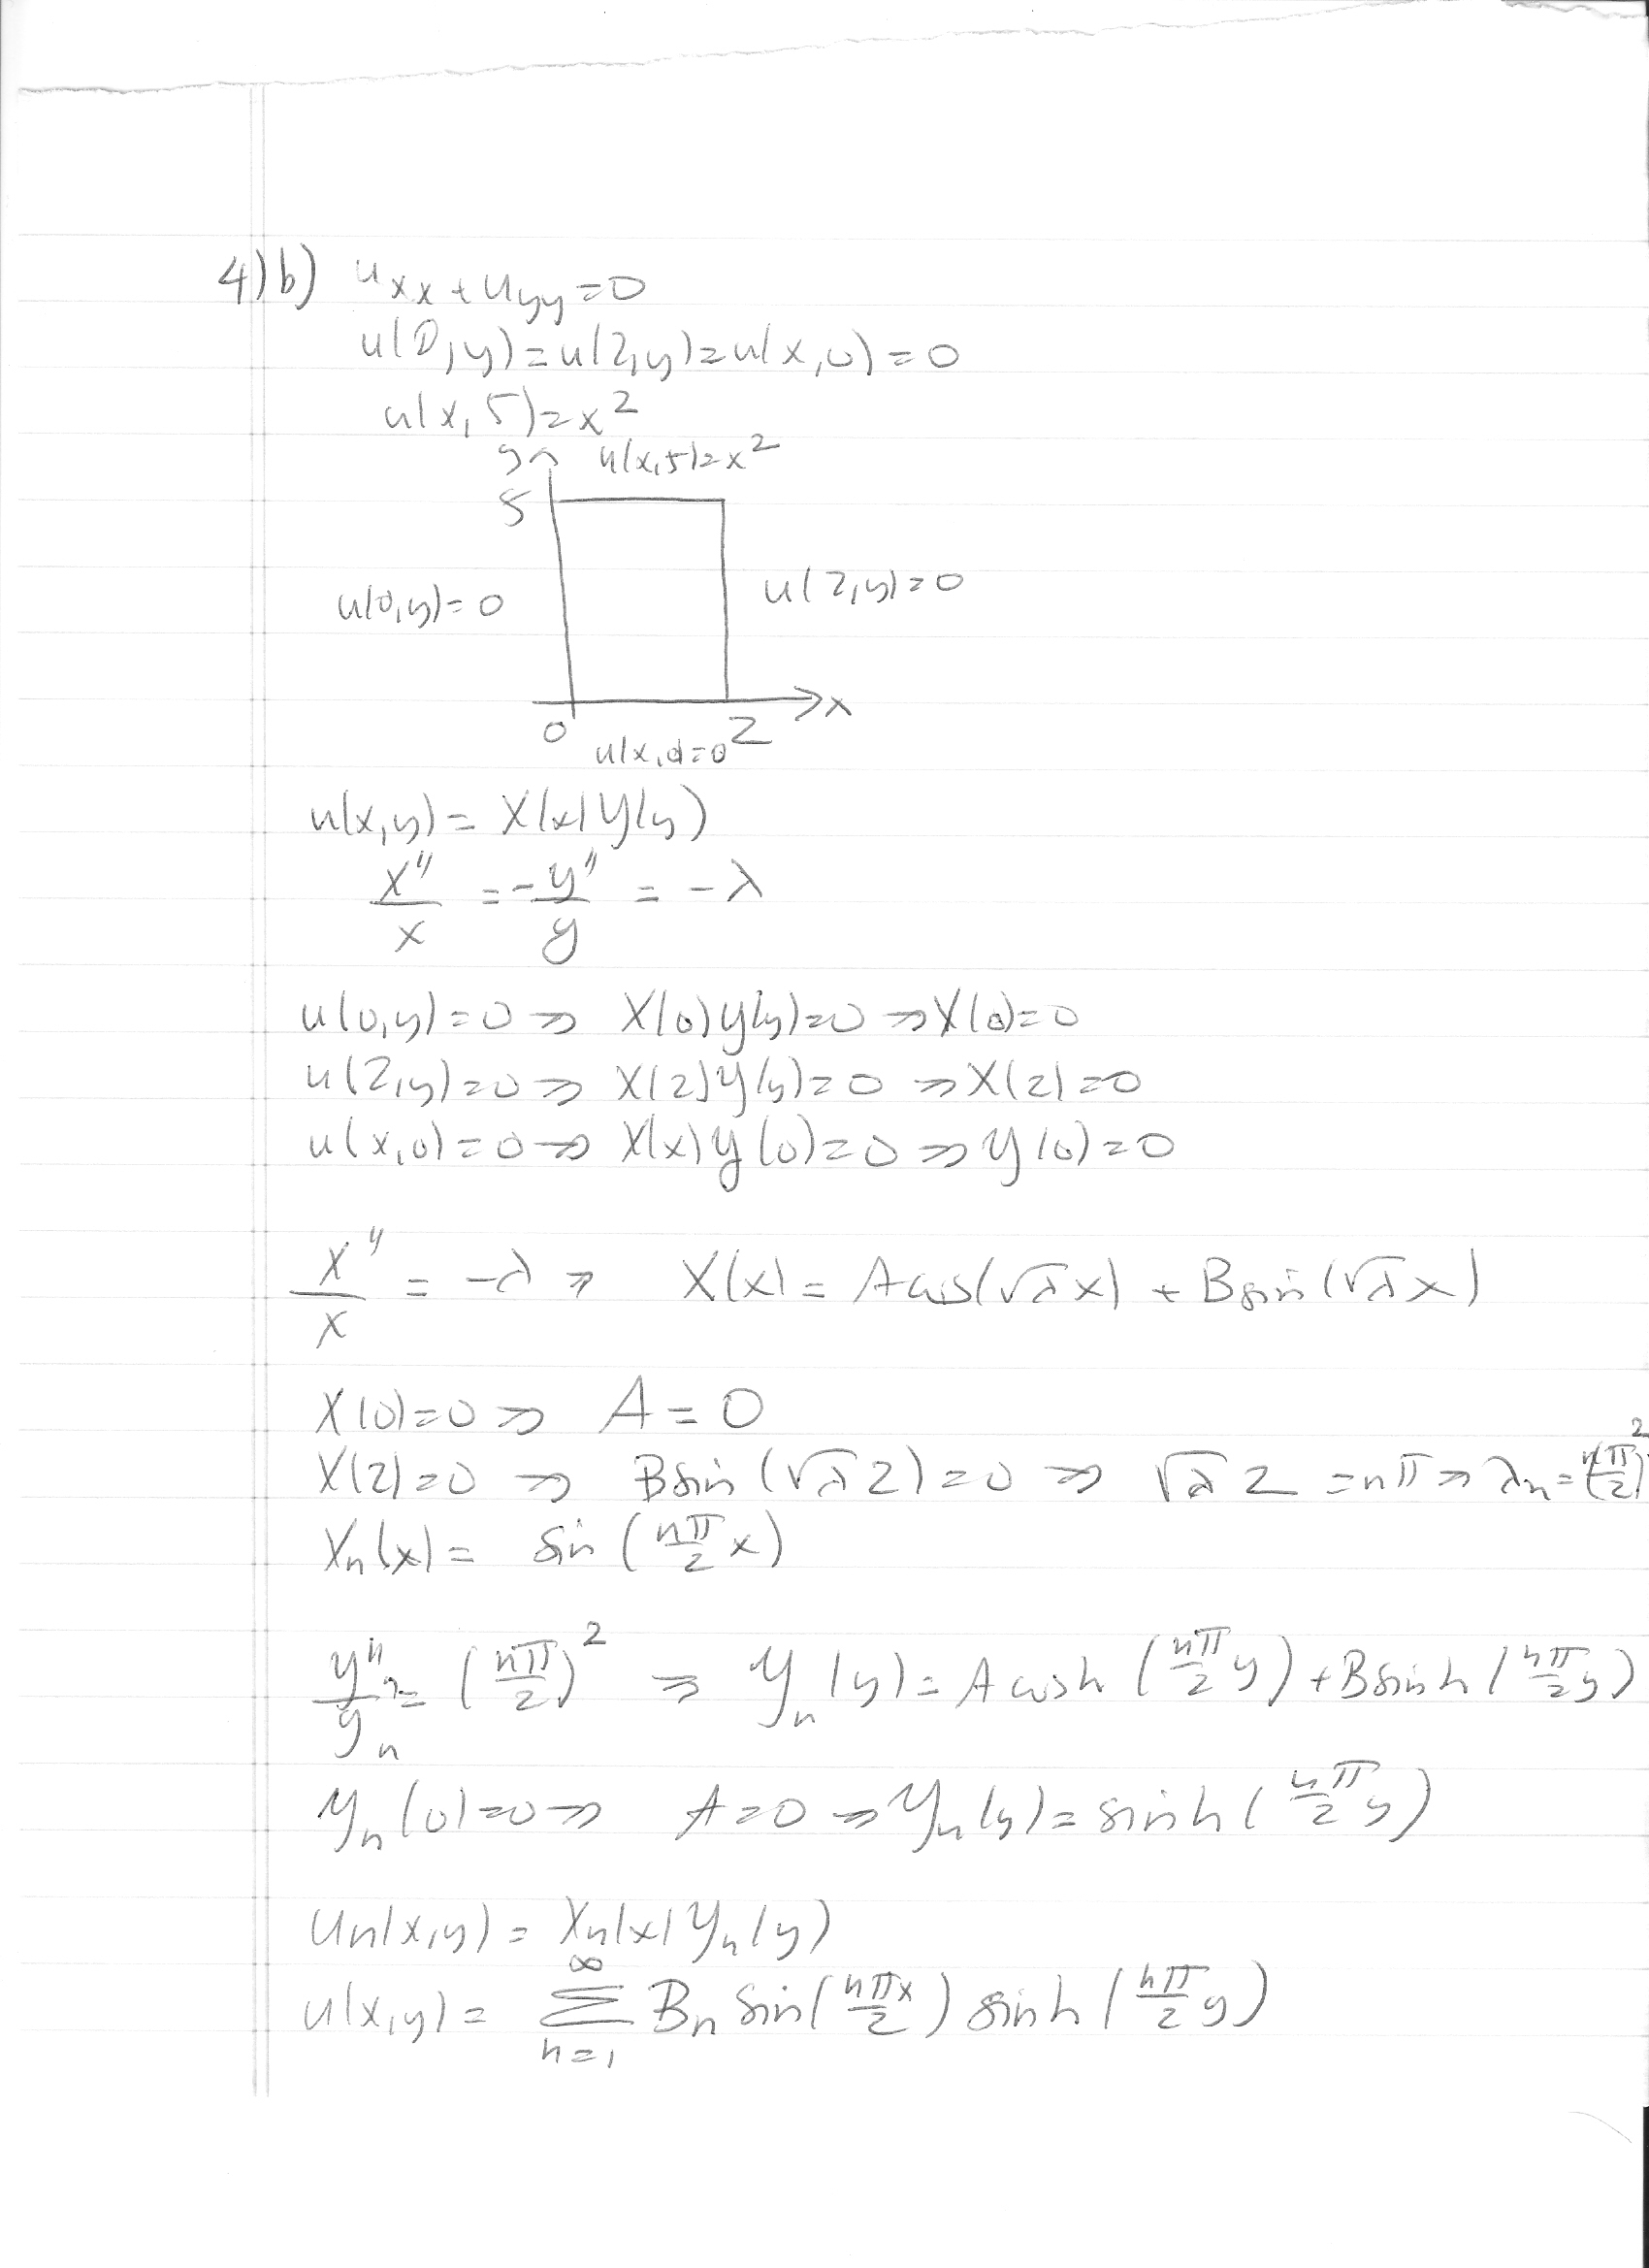 4)b) u_xx + u_yy = 0
u(0,y) = u(2,y) = u(x,0) = 0
u(x,5) = x^2
y u(x,5) = x^2
5
u(0,y) = 0 u(2,y) = 0
x
0 2
u(x,0) = 0
u(x,y) = X(x)Y(y)
X''/X = -Y''/Y = -λ
u(0,y) = 0 ⇒ X(0)Y(y) = 0 ⇒ X(0) = 0
u(2,y) = 0 ⇒ X(2)Y(y) = 0 ⇒ X(2) = 0
u(x,0) = 0 ⇒ X(x)Y(0) = 0 ⇒ Y(0) = 0
X''/X = -λ ⇒ X(x) = A cos(√λ x) + B sin(√λ x)
X(0) = 0 ⇒ A = 0
X(2) = 0 ⇒ B sin(√λ 2) = 0 ⇒ √λ 2 = nπ ⇒ λ_n = (nπ/2)^2
X_n(x) = sin(nπ/2 x)
Y_n''/Y_n = (nπ/2)^2 ⇒ Y_n(y) = A cosh(nπ/2 y) + B sinh(nπ/2 y)
Y_n(0) = 0 ⇒ A = 0 ⇒ Y_n(y) = sinh(nπ/2 y)
u_n(x,y) = X_n(x)Y_n(y)
u(x,y) = ∑_{n=1}^∞ B_n sin(nπx/2) sinh(nπ/2 y)